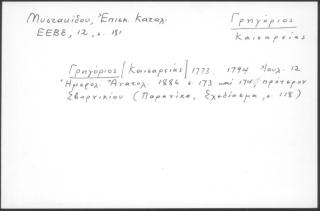 Μυστακίδου, Ἐπισκ. Καταλ.
ΕΕΒΣ, 12, σ. 181
Γρηγόριος
Καισαρείας
Γρηγόριος [Καισαρείας] 1773. 1794 Ἰουλ. 12
Ἡμερολ. Ἀνατολ. 1886 σ. 173 καὶ 174, πρότερον
Σβορνικίου (Παρανίκα, Σχεδίασμα, σ. 118)